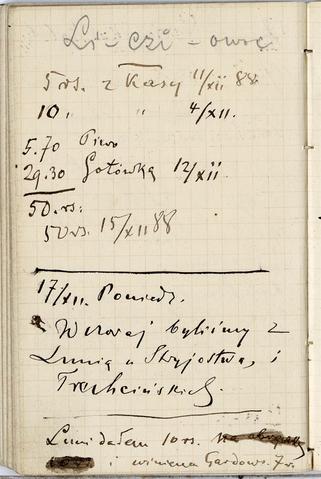 5 rs. z Kasy 11/XII 88.
10 „ „ 4/XII.
5.70 Piwo
29.30 Gotówką 12/XII
50.rs.
50 rs. 15/XII 88
17/XII. Poniedz.
Wczoraj byliśmy z
Lunią u Stryjostwa, i
Trechcińskich.
Luni dałem 10 rs.
i winienem Gardows. 7 rs.